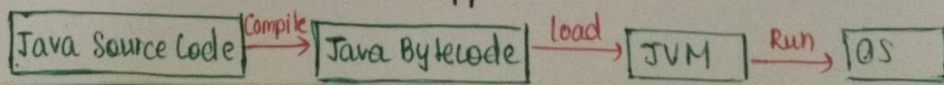 Java Source Code Compile Java Bytecode load JVM Run OS